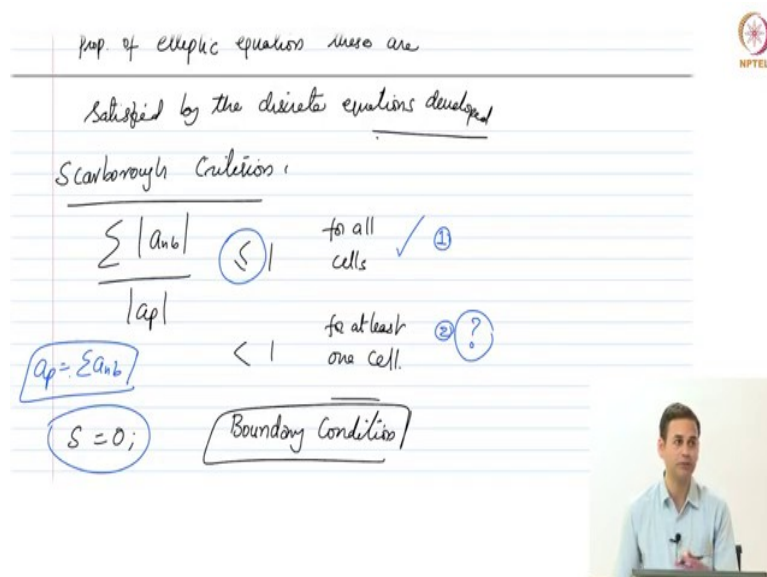 Prop. of elliptic equation these are
NPTEL
satisfied by the discrete equations developed
Scarborough Criterion.
Σ |anb| / |ap| ≤ 1 for all cells ✓ ①
< 1 for at least one cell. ② ?
ap = Σanb
S = 0;
Boundary Condition